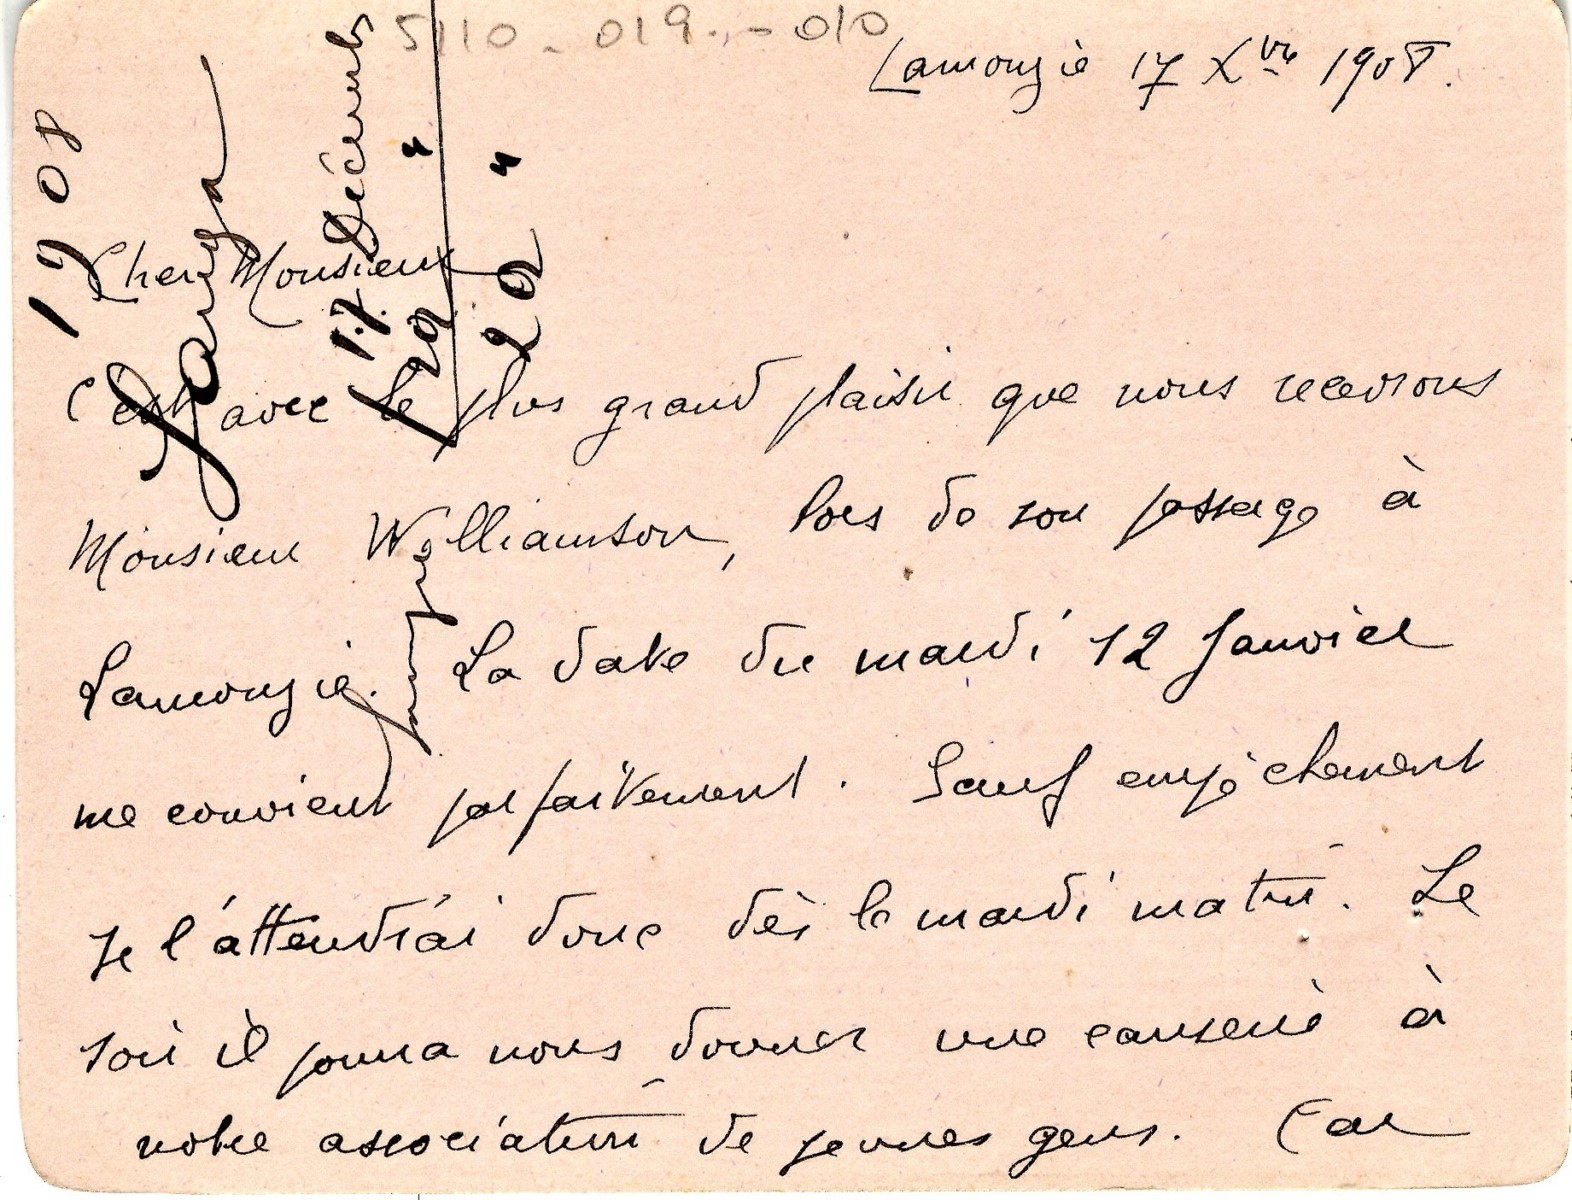 5110-019.-010
Lamouzie 17 Xbre 1908.
1908
17 Décembre
19 "
20 "
Cher Monsieur
C'est avec le plus grand plaisir que nous recevrons
Monsieur Williamson, lors de son passage à
Lamouzie. La date du mardi 12 Janvier
me convient parfaitement. Sauf empêchement
je l'attendrai donc dès le mardi matin. Le
soir il pourra nous donner une causerie à
notre association de jeunes gens. Car